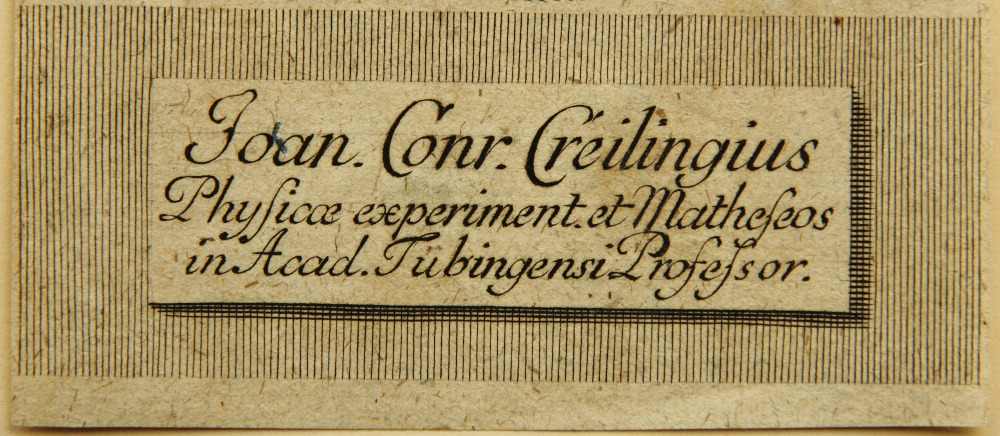 Joan. Conr. Créilingius
Phyſicæ experiment. et Matheſeos
in Acad. Tübingensi Profeſsor.